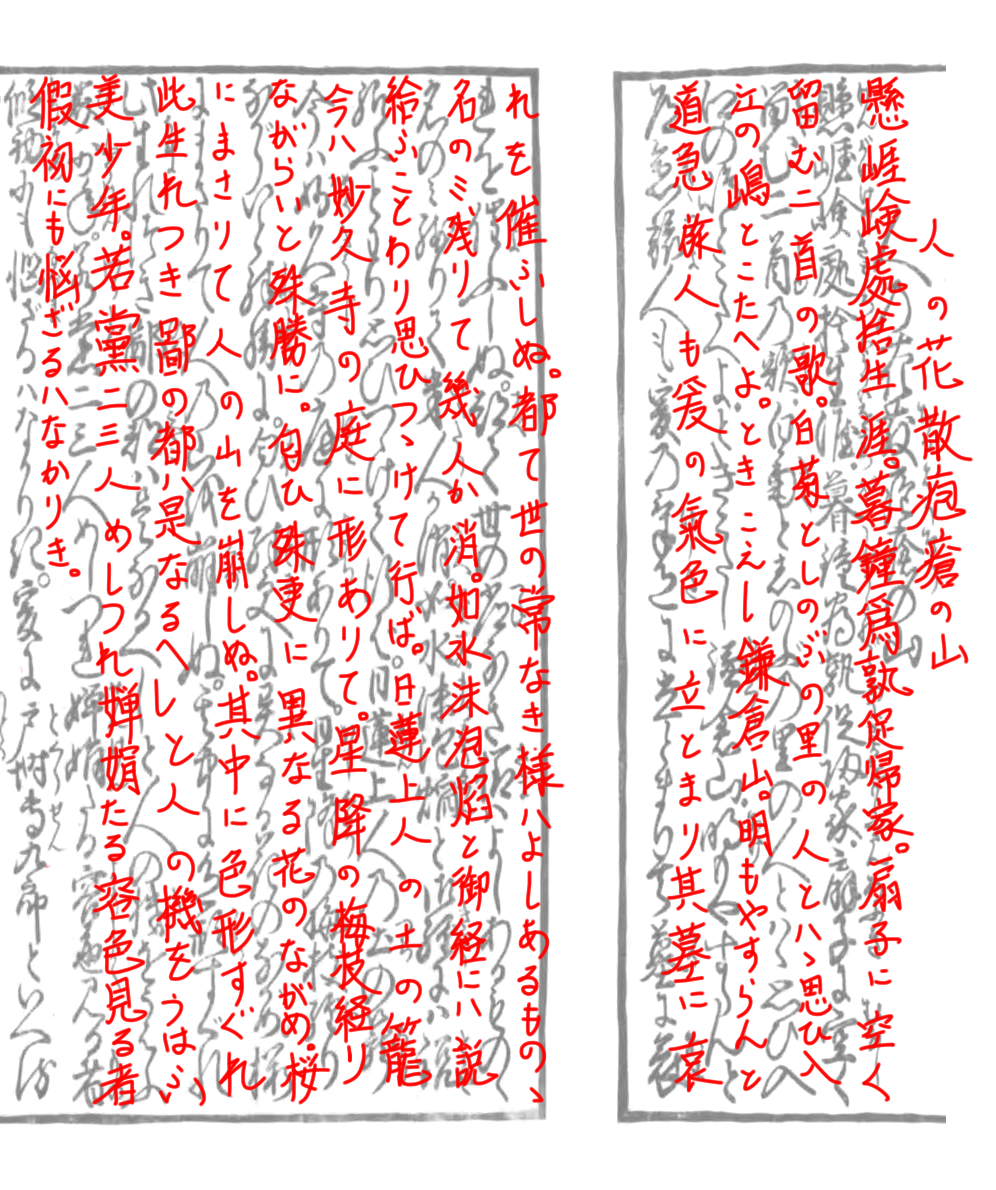 人の花散疱瘡の山
懸崕嶮處捨生涯。暮鐘爲孰促帰家。扇子に空く
留む二首の歌。白菊としのぶの里の人とハヽ思ひ入
江の嶋とこたへよ。ときこえし鎌倉山。明もやすらんと
道急旅人も爰の氣色に立とまり其墓に哀
れを催ふしぬ。都て世の常なき様ハよしあるものヽ
名のミ残りて幾人か消。如水沫泡焰と御経にハ説
給ふことわり思ひつゝけて行ば。日蓮上人の土の籠
今ハ妙久寺の庭に形ありて。星降の梅枝経り
ながらいと殊勝に。匂ひ殊更に異なる花のながめ。桜
にまさりて人の山を崩しぬ。其中に色形すぐれ
此生れつき鄙の都ハ是なるへしと人の機をうはふ
美少年。若黨二三人めしつれ嬋娟たる容色見る者
假初にも悩ざるハなかりき。